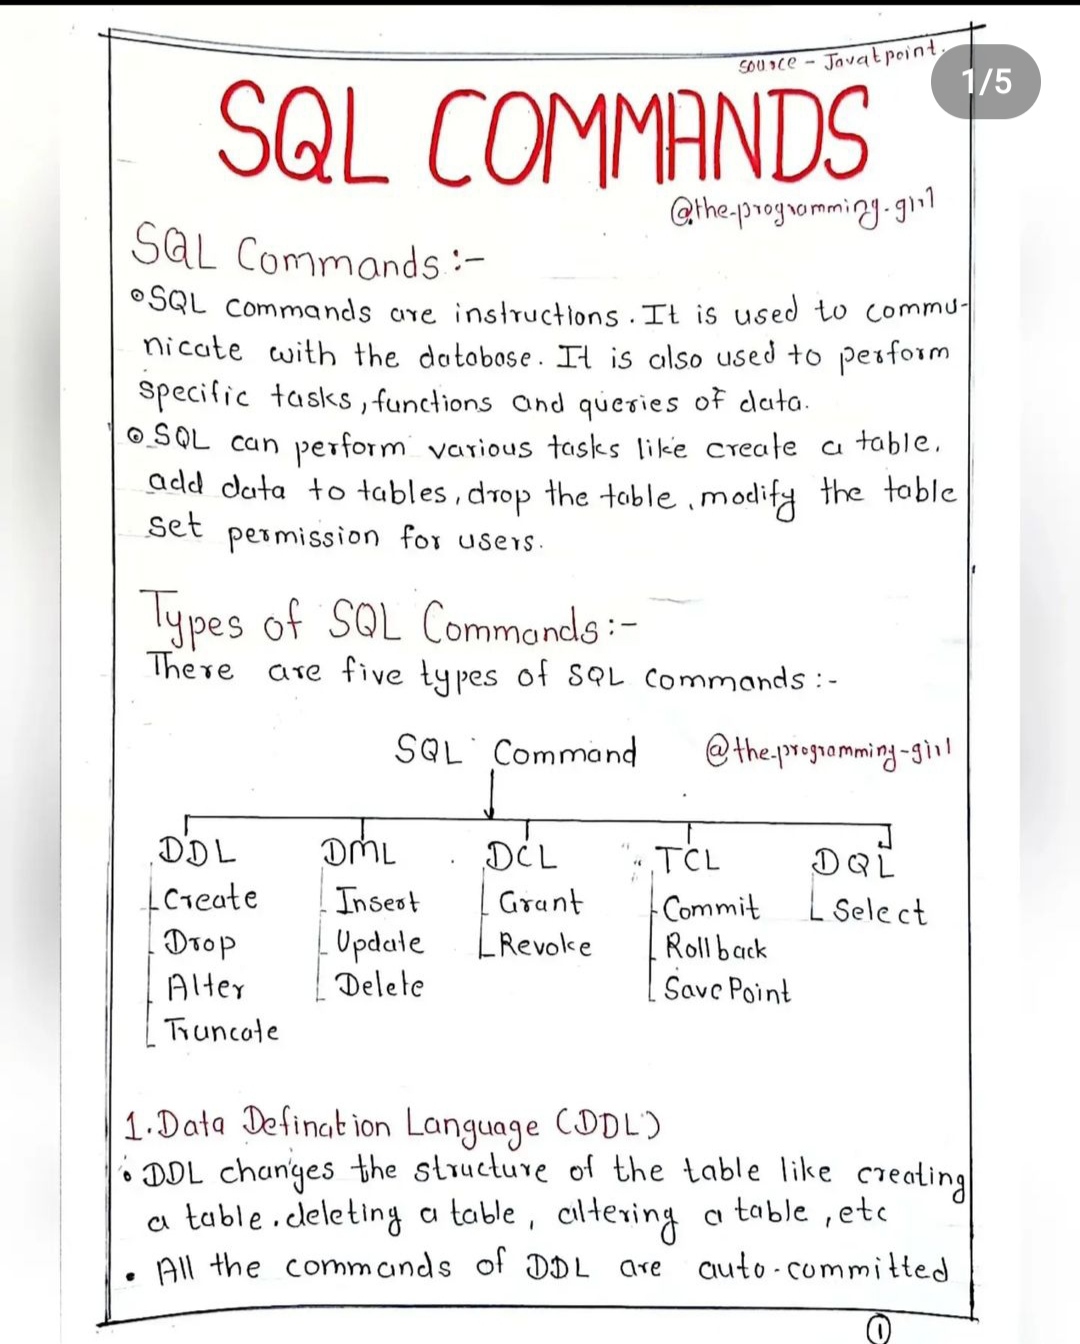 source - Javatpoint.
1/5
SQL COMMANDS
@the-programming-girl
SQL Commands :-
SQL commands are instructions. It is used to commu-
nicate with the database. It is also used to perform
specific tasks, functions and queries of data.
SQL can perform various tasks like create a table,
add data to tables, drop the table, modify the table
set permission for users.
Types of SQL Commands :-
There are five types of SQL commands :-
SQL Command @the-programming-girl
DDL DML DCL TCL DQL
Create Insert Grant Commit Select
Drop Update Revoke Rollback
Alter Delete SavePoint
Truncate
1. Data Defination Language (DDL)
DDL changes the structure of the table like creating
a table, deleting a table, altering a table, etc
All the commands of DDL are auto-committed
1